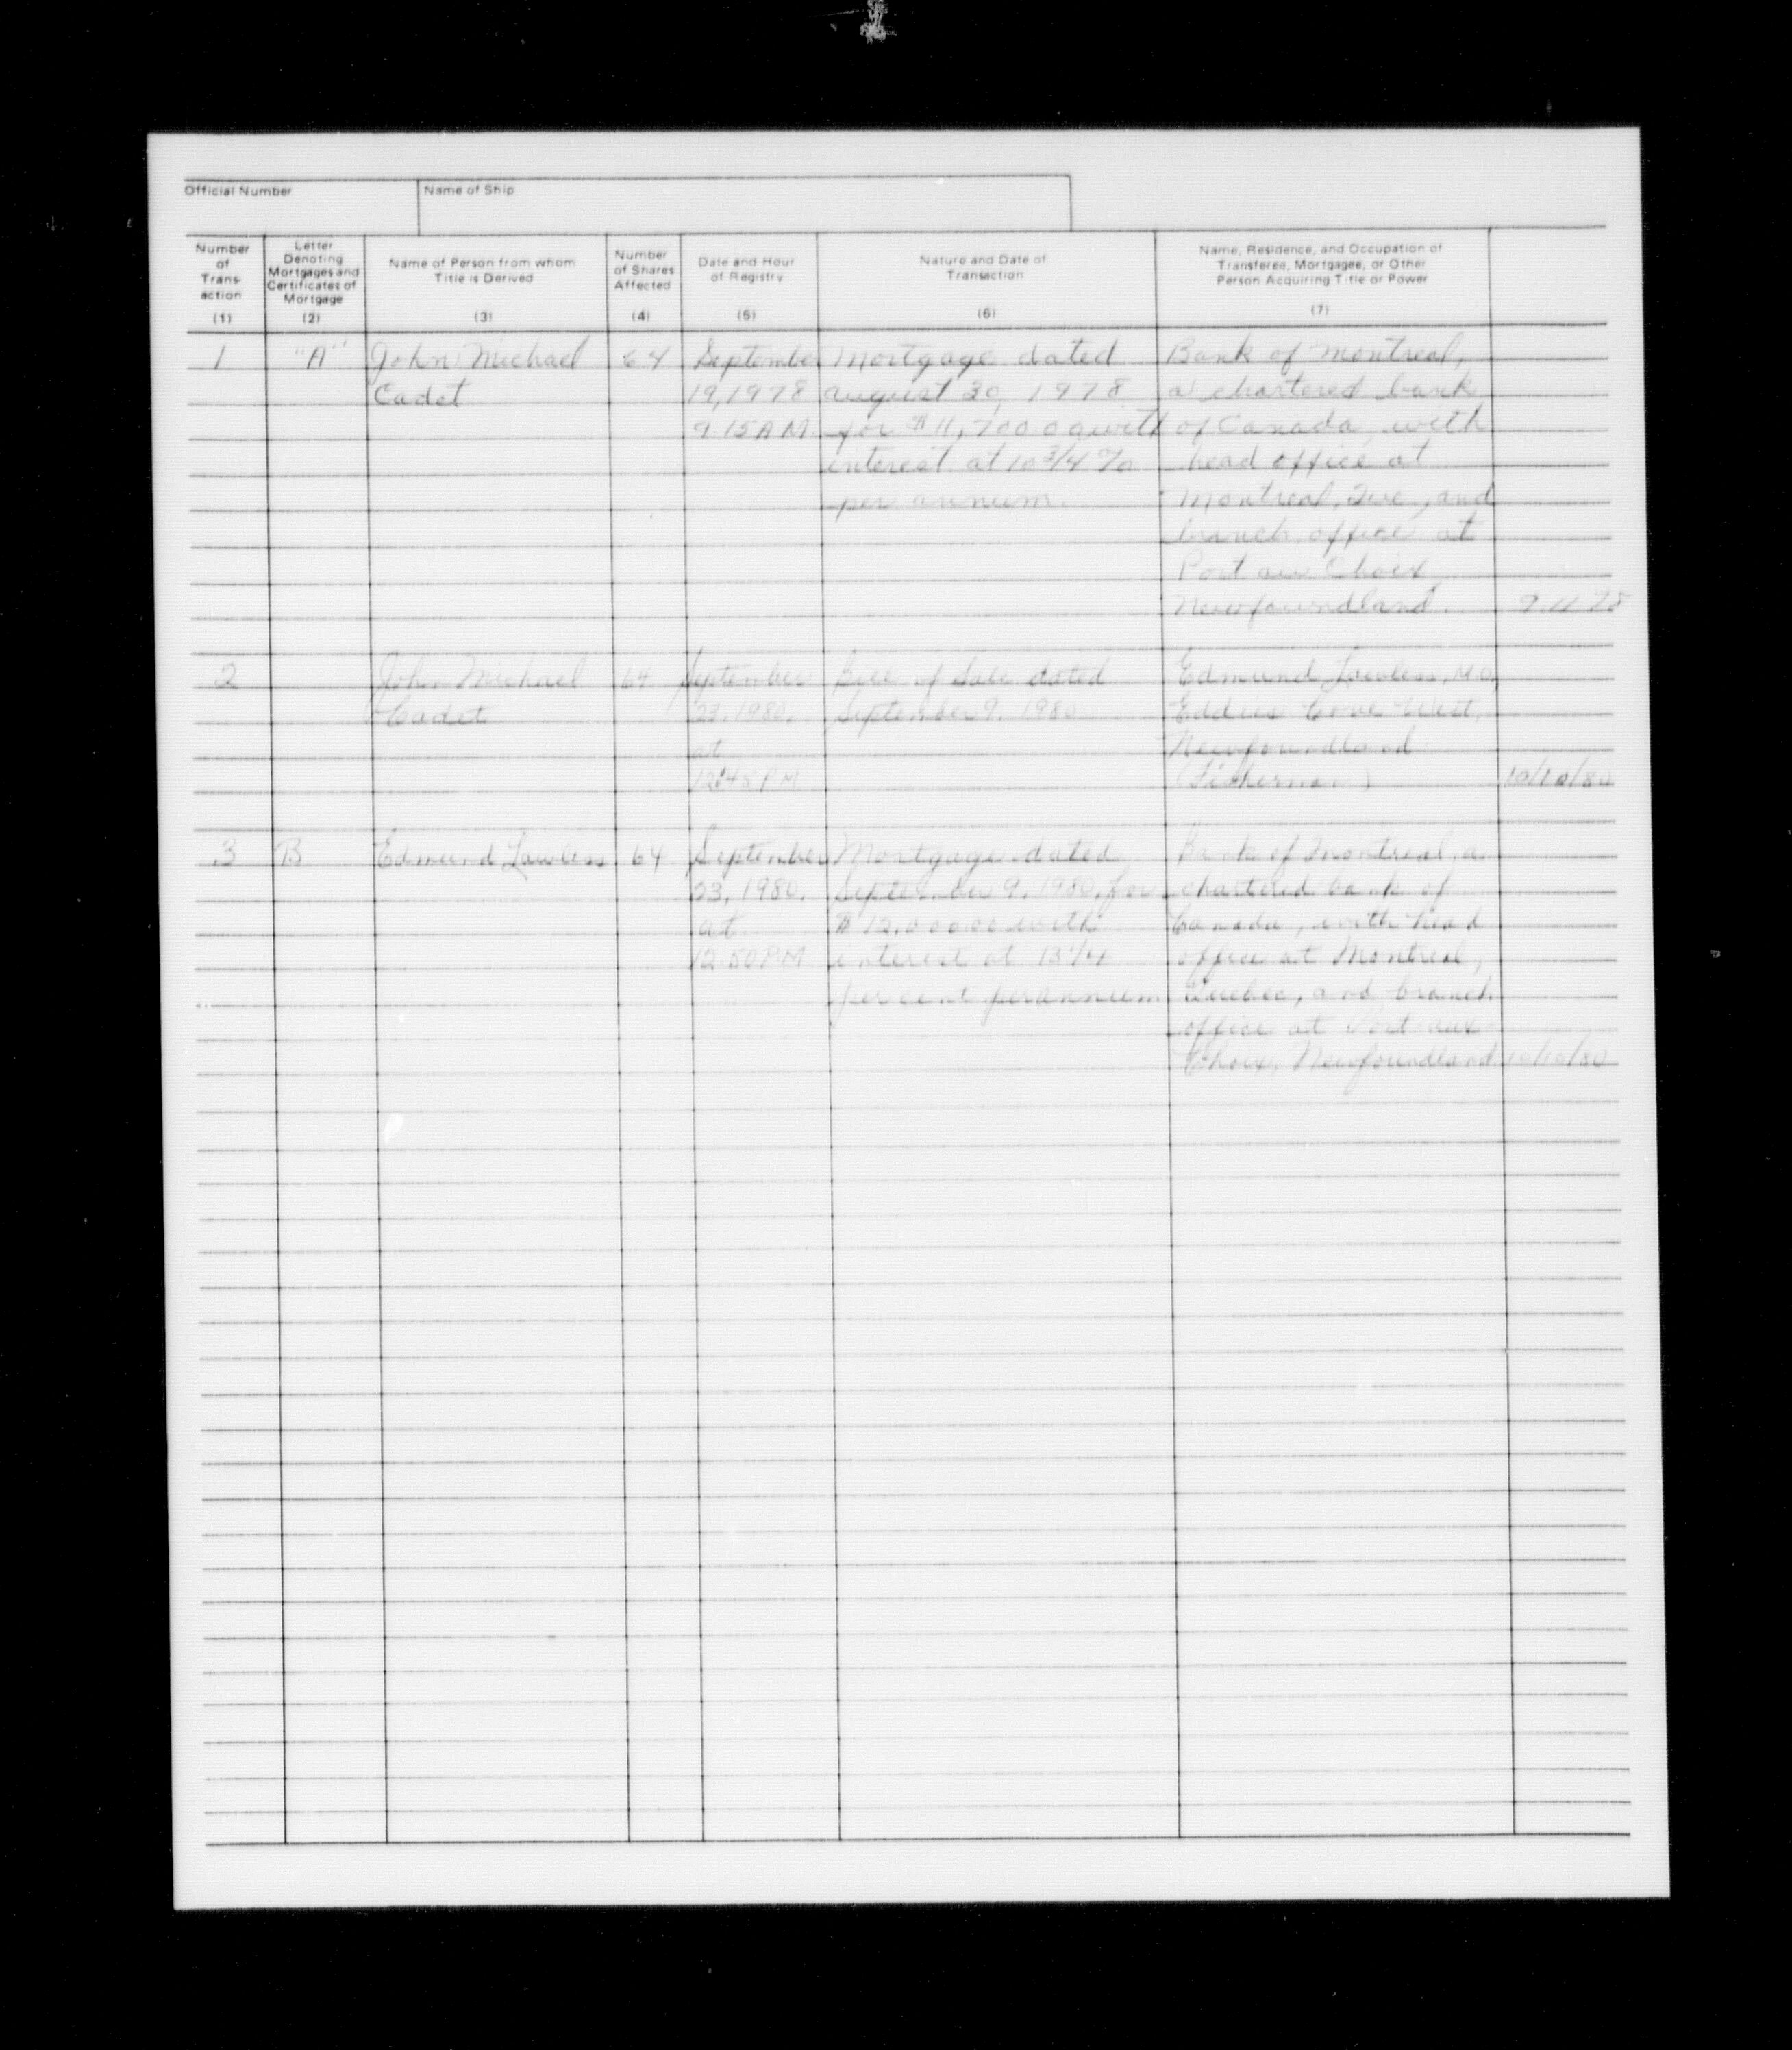 Official Number
Name of Ship
Number of Trans- action (1)
Letter Denoting Mortgages and Certificates of Mortgage (2)
Name of Person from whom Title is Derived (3)
Number of Shares Affected (4)
Date and Hour of Registry (5)
Nature and Date of Transaction (6)
Name, Residence, and Occupation of Transferee, Mortgagee, or Other Person Acquiring Title or Power (7)
1 "A" John Michael 64 September Mortgage dated Bank of Montreal,
Cadet 19, 1978 august 30, 1978 a chartered bank
9.15 A M. for $11,700.00 with of Canada, with
interest at 10 3/4 % head office at
per annum. Montreal, Que., and
branch office at
Port au Choix
Newfoundland. 9 11 78
2 John Michael 64 September Bill of Sale dated Edmund Lawless, M.O.,
Cadet 23, 1980, September 9, 1980 Eddies Cove West,
at Newfoundland
12:48 P.M. (Fisherman) 10/10/80
3 B Edmund Lawless 64 September Mortgage dated Bank of Montreal, a
23, 1980, September 9, 1980, for chartered bank of
at $12,000.00 with Canada, with head
12.50 P.M interest at 13 1/4 office at Montreal,
percent per annum Quebec, and branch
office at Port aux
Choix, Newfoundland 10/10/80